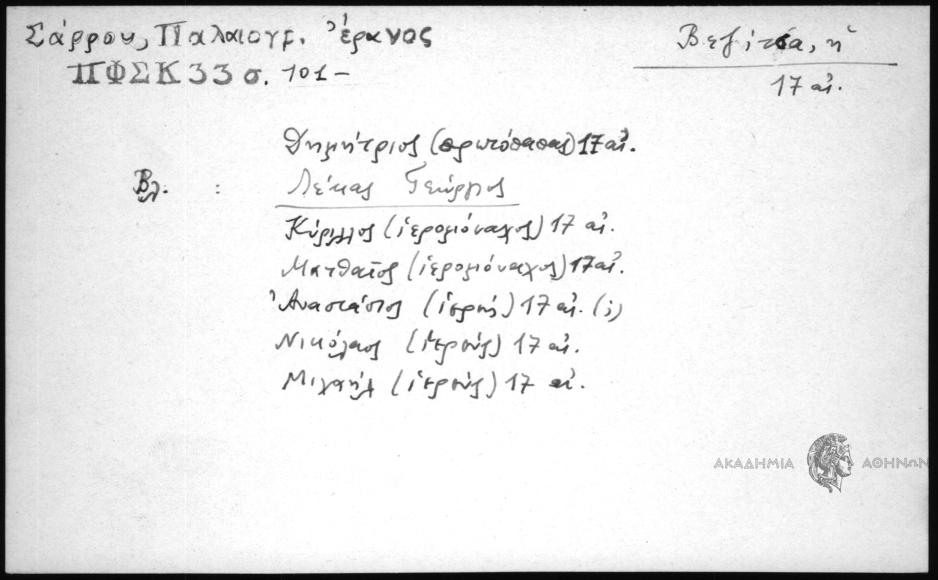 Σάρρου, Παλαιογρ. ἔρανος
ΠΦΣΚ 33 σ. 101 –
Βεζίτσα, ἡ
17 αἰ.
Δημήτριος (πρωτόπαπας) 17 αἰ.
Βλ. : Λέκας Γεώργιος
Κύριλλος (ἱερομόναχος) 17 αἰ.
Ματθαῖος (ἱερομόναχος) 17 αἰ.
Ἀναστάσιος (ἱερεύς) 17 αἰ. (;)
Νικόλαος (ἱερεύς) 17 αἰ.
Μιχαήλ (ἱερεύς) 17 αἰ.
ΑΚΑΔΗΜΙΑ ΑΘΗΝΩΝ